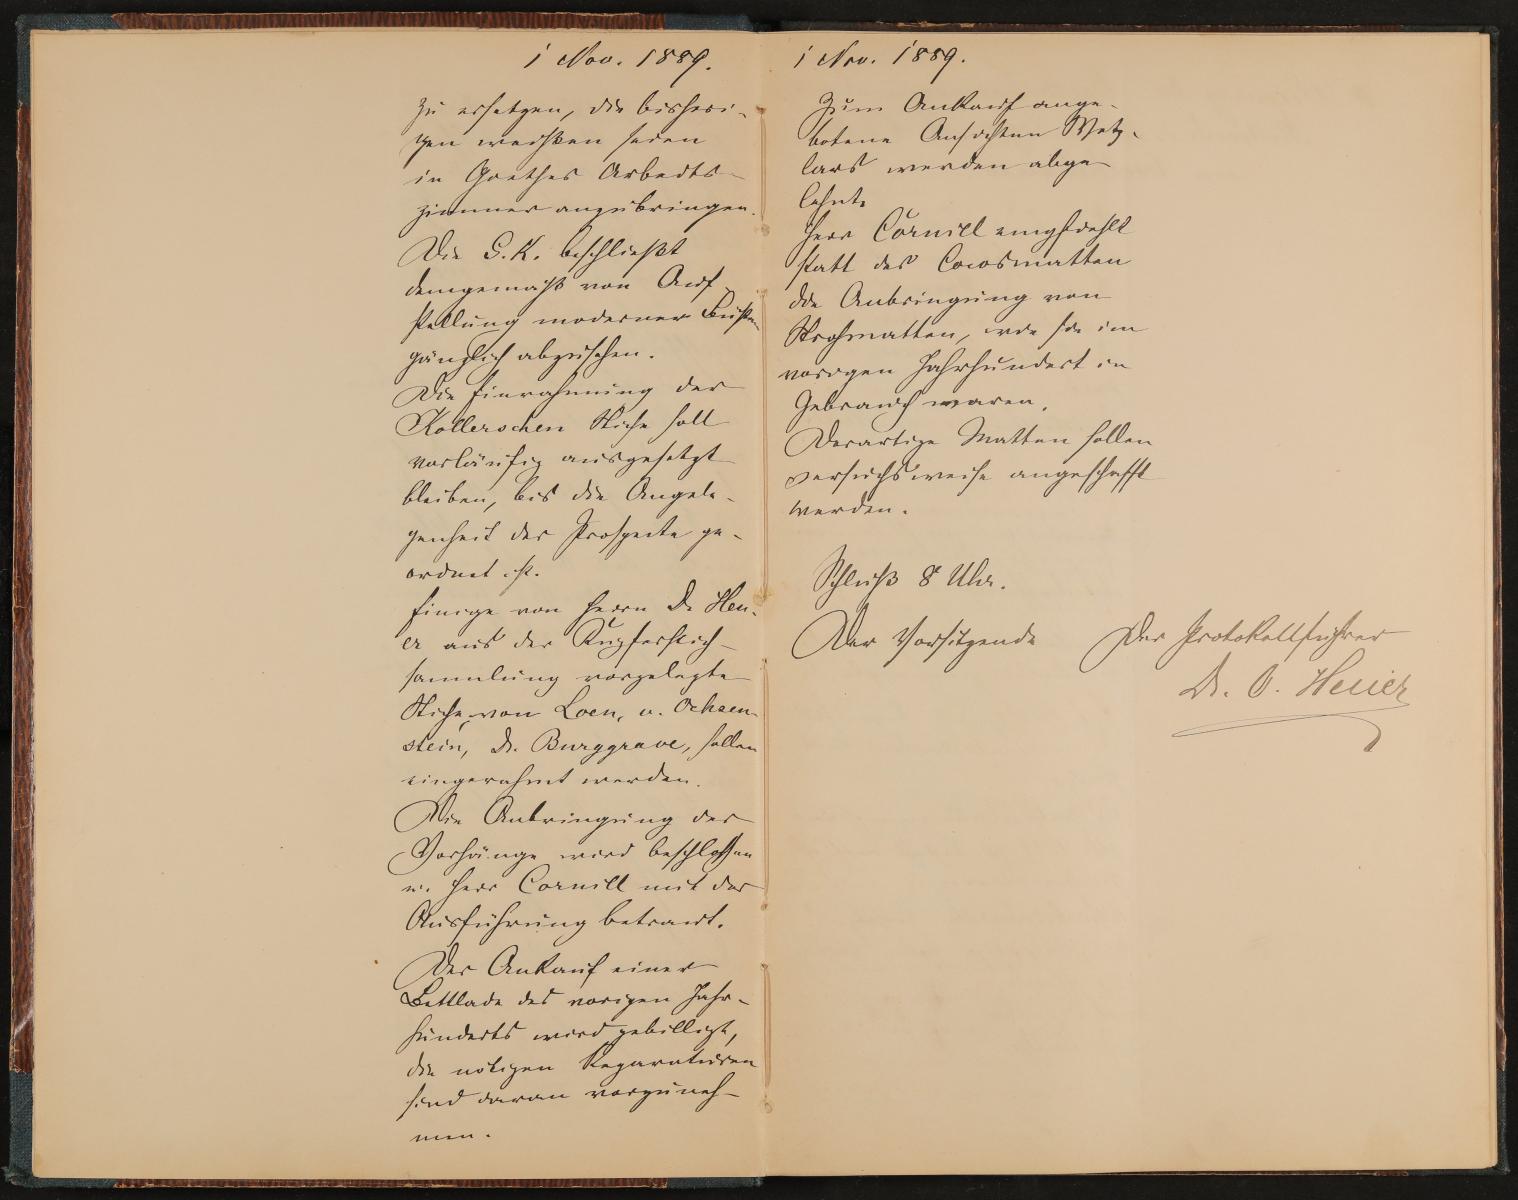 1 Nov. 1889.
zu ersetzen, die bisheri-
gen
in Goethes Arbeits-
zimmer anzubringen.
Die G. K. beschließt
demgemäß von Auf-
stellung moderner Büsten
gänzlich abzusehen.
Die Einrahmung der
Kollerschen Stiche soll
vorläufig ausgesetzt
bleiben, bis die Angele-
genheit der Prospecte ge-
ordnet ist.
Einige von Herrn Dr. Heu-
er aus der Kupferstich-
sammlung vorgelegte
Stiche, von Loen, v. Ochsen-
stein, Dr. Burggrave, sollen
eingerahmt werden.
Die Anbringung der
Vorhänge wird beschlossen
u. Herr Cornill mit der
Ausführung betraut.
Der Ankauf einer
Bettlade des vorigen Jahr-
hunderts wird gebilligt,
die nötigen Reparaturen
sind daran vorzuneh-
men.
1 Nov. 1889.
Zum Ankauf ange-
botene Ansichten Wetz-
lars werden abge-
lehnt.
Herr Cornill empfiehlt
statt der Cocosmatten
die Anbringung von
Strohmatten, wie sie im
vorigen Jahrhundert in
Gebrauch waren.
Derartige Matten sollen
versuchsweise angeschafft
werden.
Schluß 8 Uhr.
Der Vorsitzende Der Protokollführer
Dr. O. Heuer